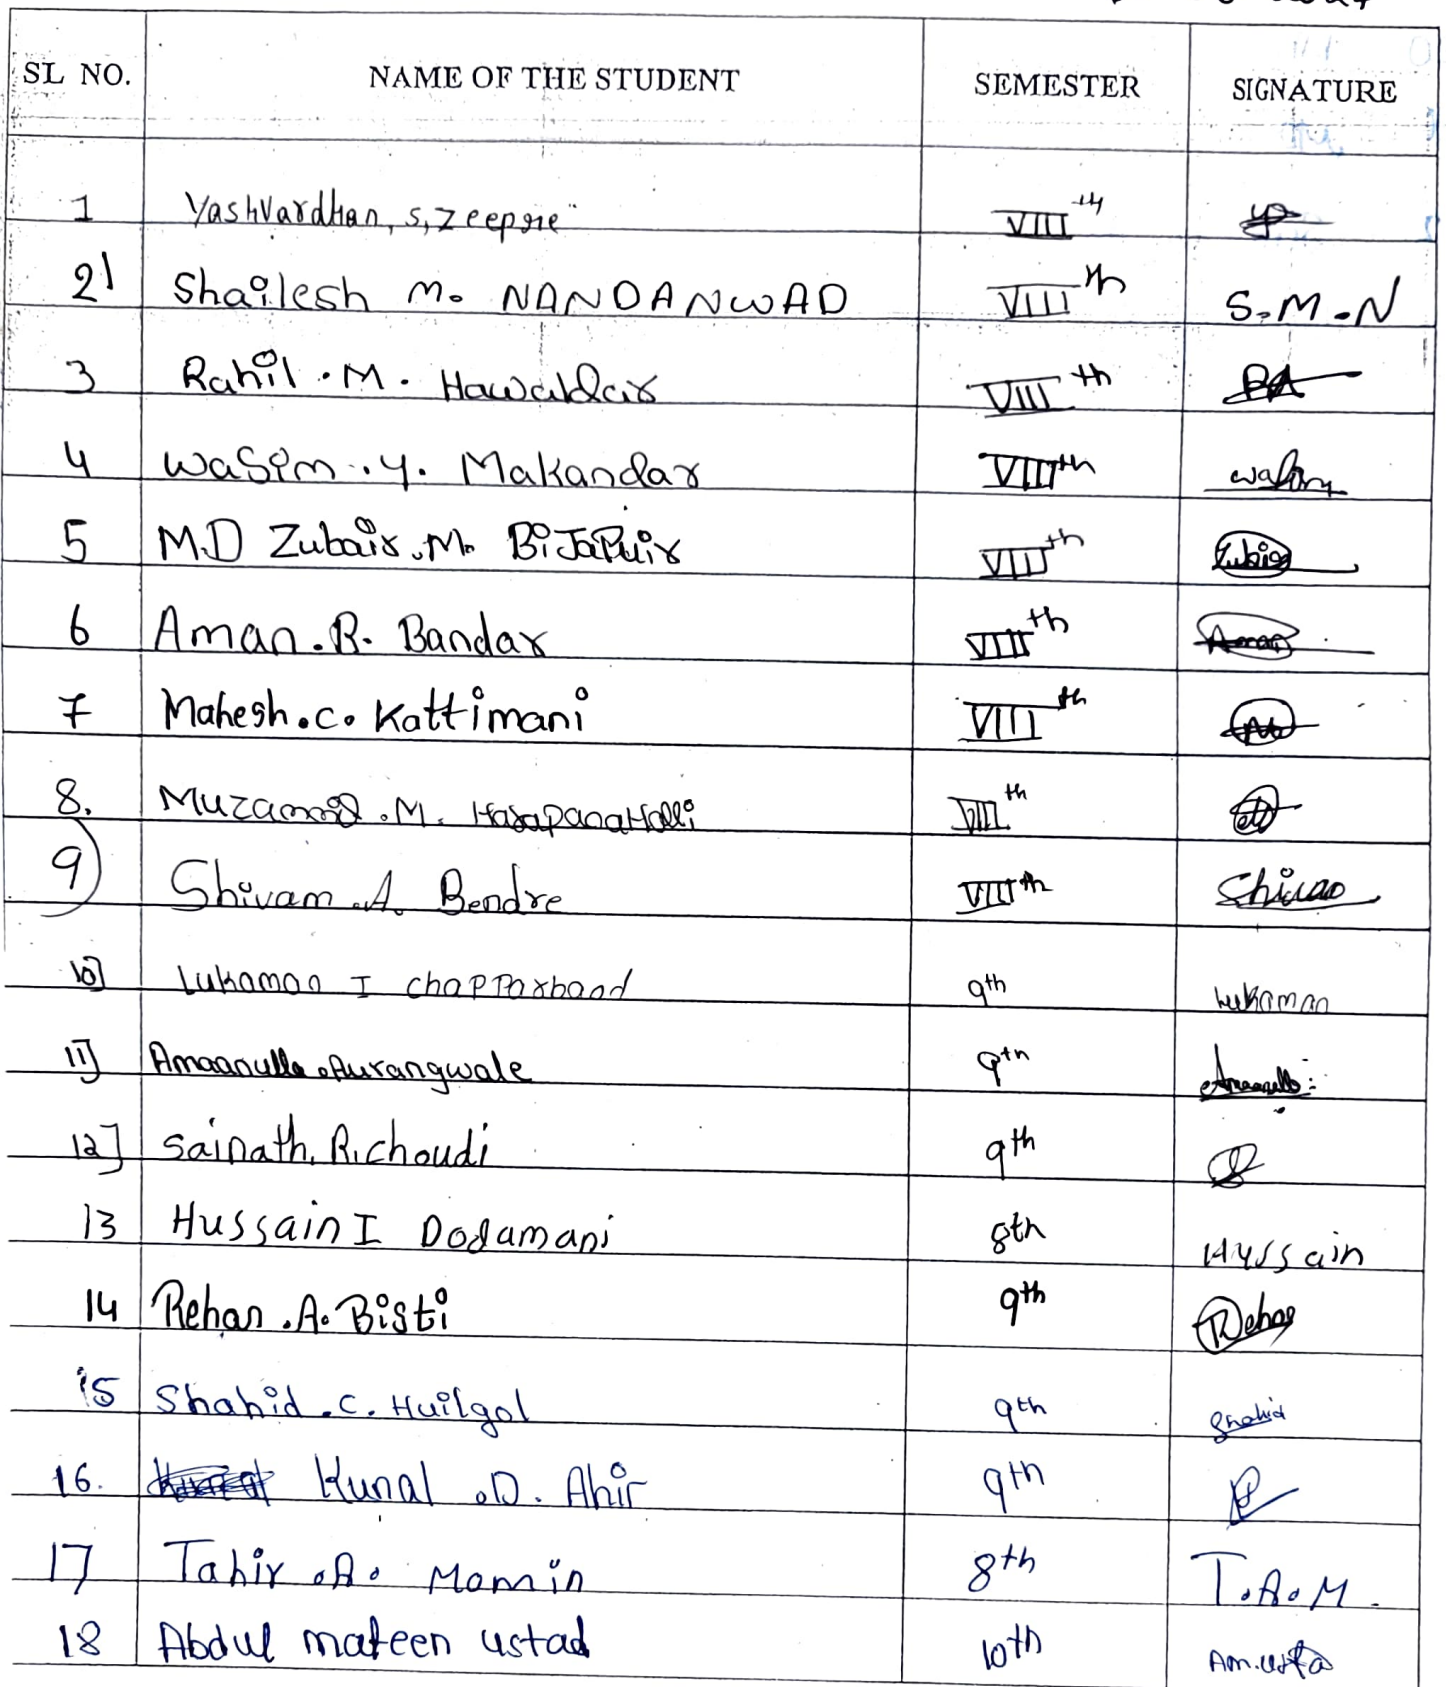 SL NO. NAME OF THE STUDENT SEMESTER SIGNATURE
1 Yashvardhan, S, Zeepre VIII th
2) Shailesh M. NANDANWAD VIII th S.M.N
3 Rahil . M . Hawaldar VIII th
4 Wasim . Y. Makandar VIII th Wasim
5 M.D Zubair . M. BiJaPuir VIII th Zubair
6 Aman . R. Bandar VIII th Aman
7 Mahesh . C. Kattimani VIII th
8. Muzammil . M. HarapanaHalli VIII th
9) Shivam . A. Bendre VIII th Shivam
10] Lukaman I Chapparband 9th Lukaman
11] Amaanulla . Aurangwale 9th Amaanulla
12] Sainath. R. Choudi 9th
13 Hussain I Dodamani 8th Hussain
14 Rehan . A. Bisti 9th Rehan
15 Shahid . C. Huilgol 9th Shahid
16. Kunal . D. Ahir 9th
17 Tahir . A. Momin 8th T.A.M.
18 Abdul mateen ustad 10th